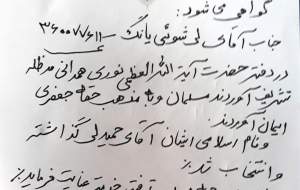 گواهی می شود:
جناب آقای لی شوئی یانگ — ۳۶۰۰۷۷۶۱۱
در دفتر حضرت آیة الله العظمی نوری همدانی مدظله
تشریف آوردند مسلمان و به مذهب حقه جعفری
ایمان آوردند.
و نام اسلامی ایشان آقای حمید لی گذاشته
و انتخاب شد.